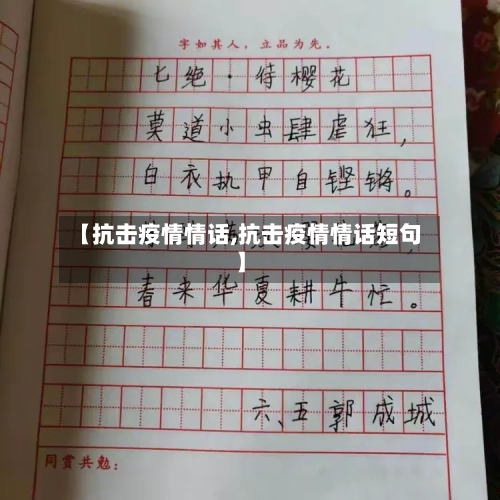 字如其人，立品为先。
七绝·待樱花
莫道小虫肆虐狂，
白衣执甲自铿锵。
【抗击疫情情话,抗击疫情情话短句
】
春来华夏耕牛忙。
六、五郭成城
同赏共勉：